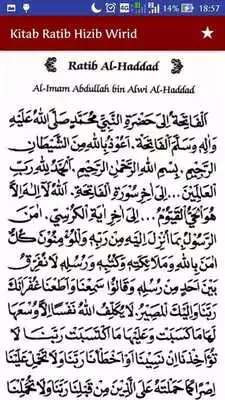 4G 14% 18:57
Kitab Ratib Hizib Wirid
Ratib Al-Haddad
Al-Imam Abdullah bin Alwi Al-Haddad
اَلْفَاتِحَةُ إِلَى حَضْرَةِ النَّبِيِّ مُحَمَّدٍ صَلَّى اللهُ عَلَيْهِ
وَاٰلِهِ وَسَلَّمَ اَلْفَاتِحَةَ. اَعُوْذُ بِاللهِ مِنَ الشَّيْطَانِ
الرَّجِيْمِ. بِسْمِ اللهِ الرَّحْمٰنِ الرَّحِيْمِ. اَلْحَمْدُ لِلّٰهِ رَبِّ
الْعَالَمِيْنَ... إِلَى اٰخِرِ سُوْرَةِ الْفَاتِحَةِ. اَللهُ لَا إِلٰهَ إِلَّا
هُوَ الْحَيُّ الْقَيُّوْمُ... إِلَى اٰخِرِ اٰيَةِ الْكُرْسِيِّ. اٰمَنَ
الرَّسُوْلُ بِمَا اُنْزِلَ اِلَيْهِ مِنْ رَبِّهِ وَالْمُؤْمِنُوْنَ كُلٌّ
اٰمَنَ بِاللهِ وَمَلَائِكَتِهِ وَكُتُبِهِ وَرُسُلِهِ لَا نُفَرِّقُ
بَيْنَ اَحَدٍ مِنْ رُسُلِهِ وَقَالُوْا سَمِعْنَا وَاَطَعْنَا غُفْرَانَكَ
رَبَّنَا وَاِلَيْكَ الْمَصِيْرُ. لَا يُكَلِّفُ اللهُ نَفْسًا اِلَّا وُسْعَهَا
لَهَا مَا كَسَبَتْ وَعَلَيْهَا مَا اكْتَسَبَتْ رَبَّنَا لَا
تُؤَاخِذْنَا اِنْ نَسِيْنَا اَوْ اَخْطَأْنَا رَبَّنَا وَلَا تَحْمِلْ عَلَيْنَا
اِصْرًا كَمَا حَمَلْتَهُ عَلَى الَّذِيْنَ مِنْ قَبْلِنَا رَبَّنَا وَلَا تُحَمِّلْنَا